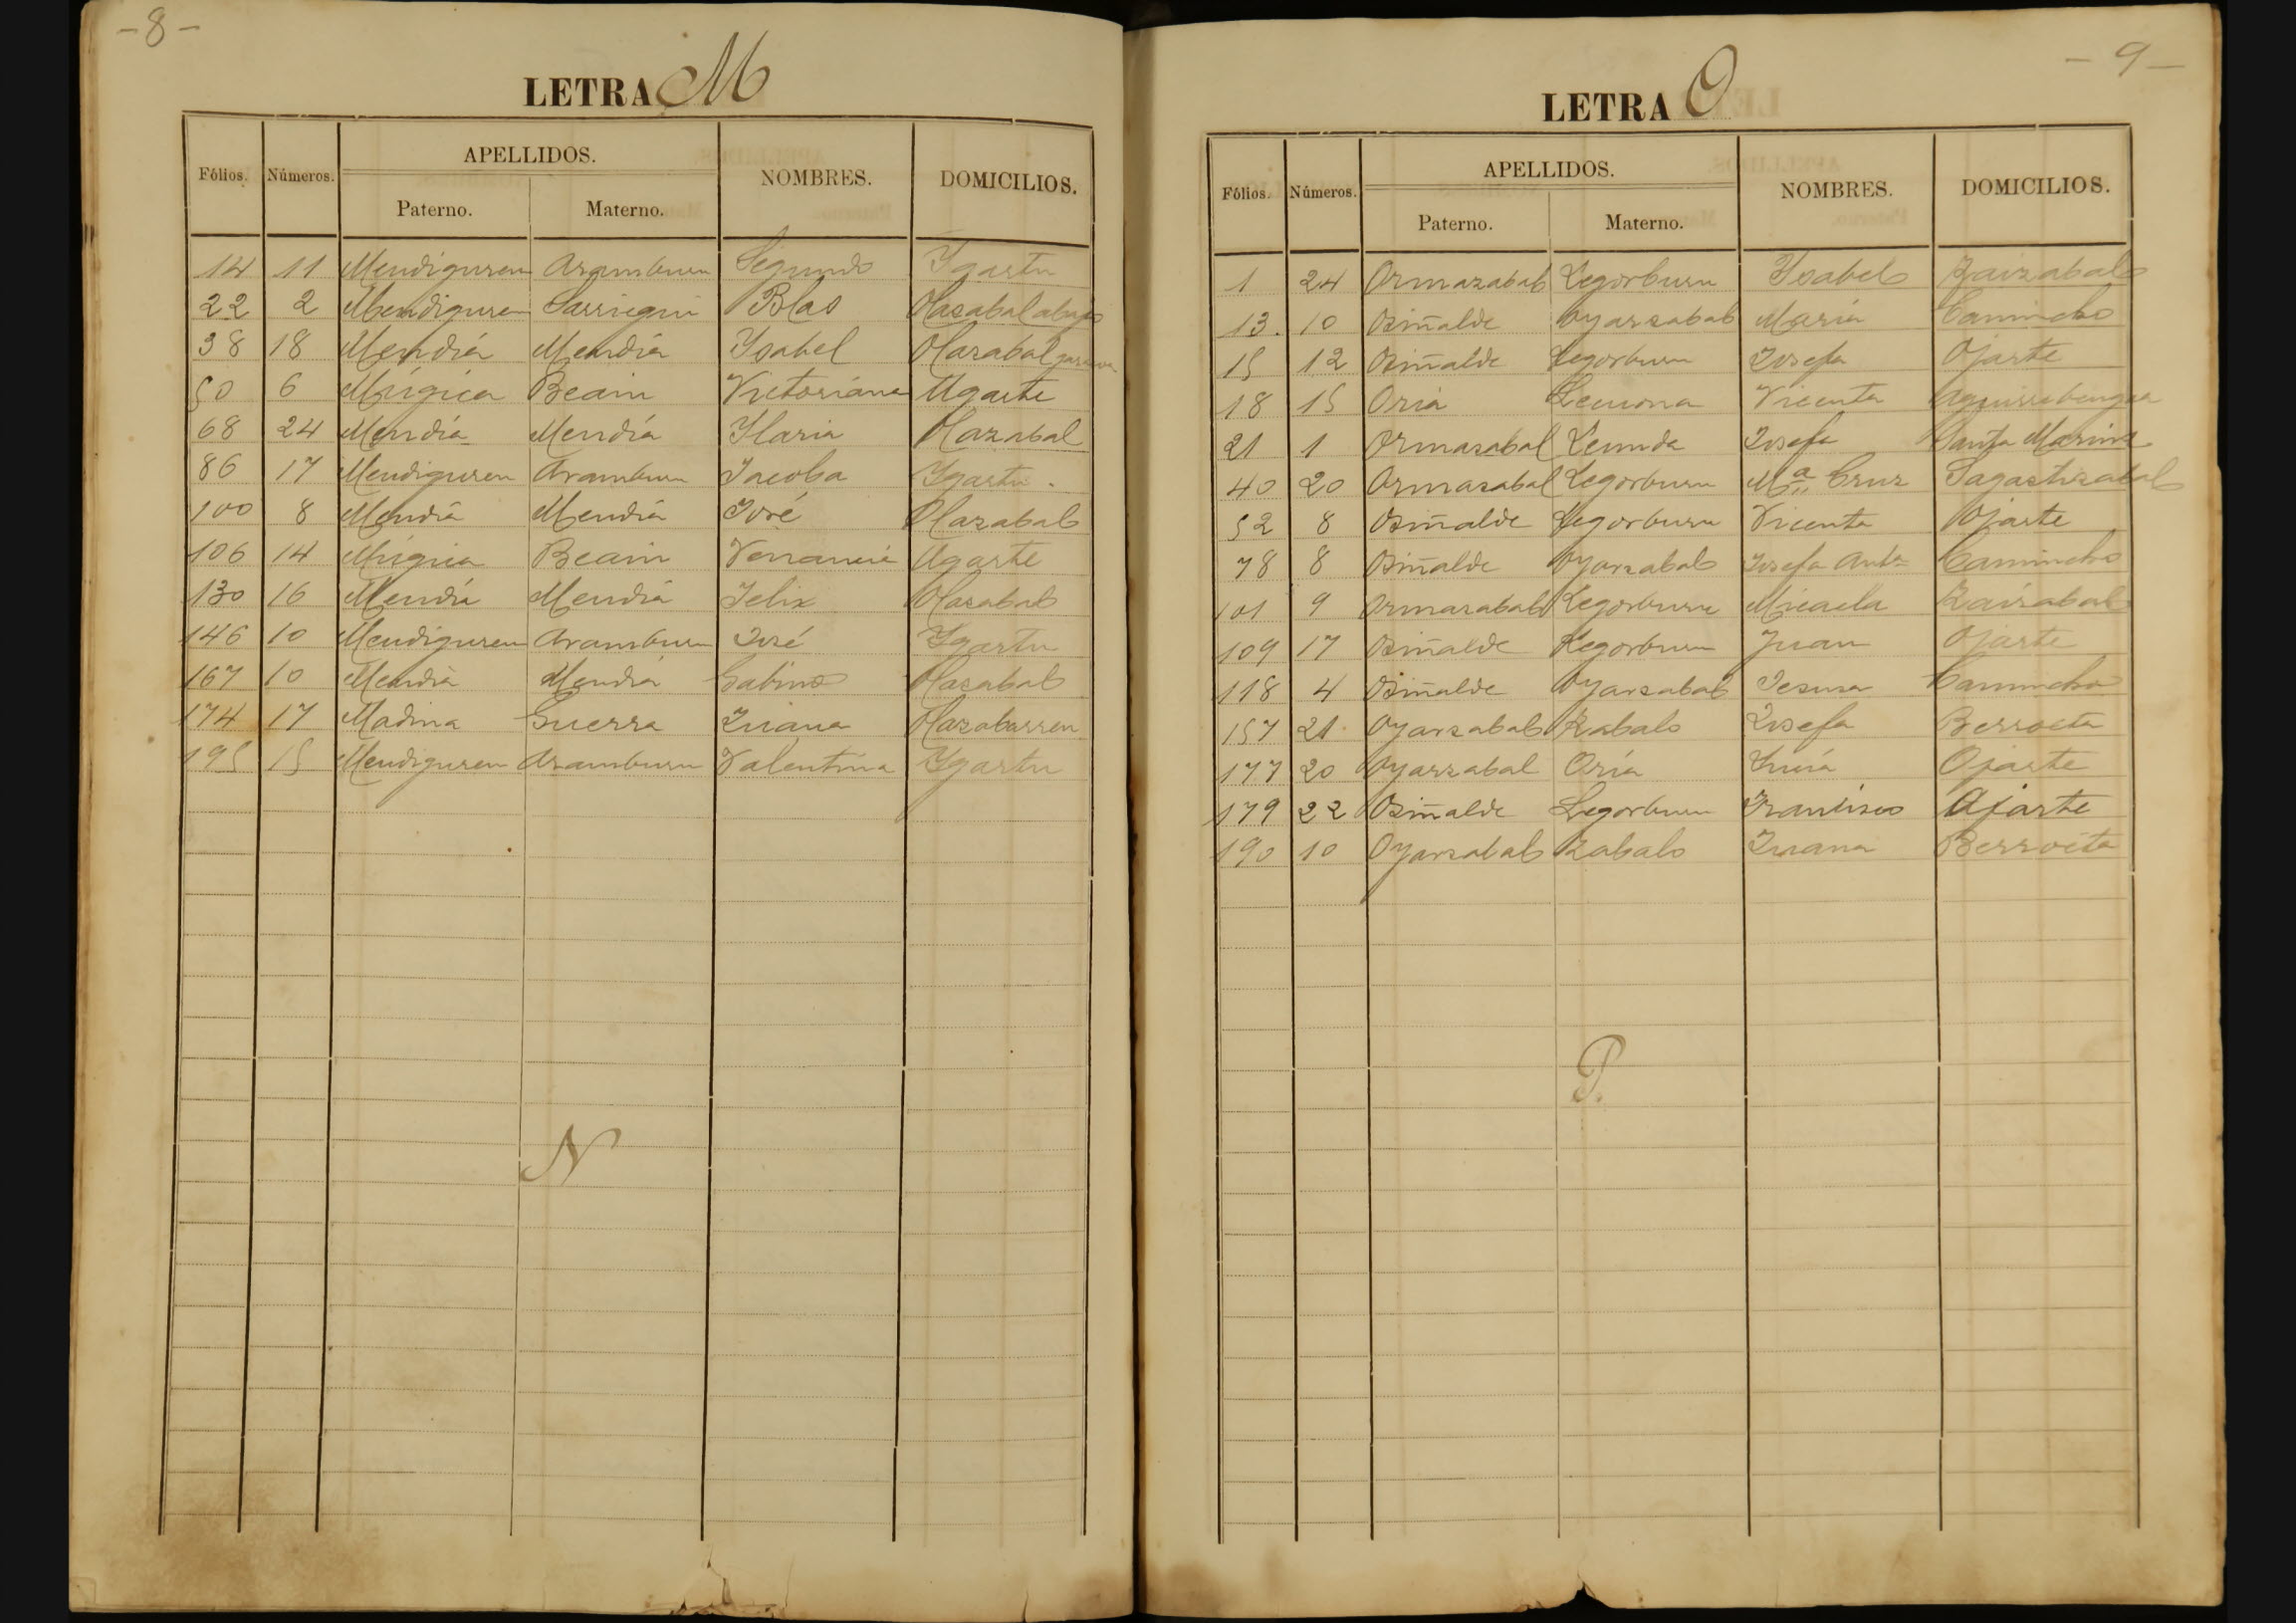 -8-
LETRA M
Fólios. Números. APELLIDOS. NOMBRES. DOMICILIOS.
Paterno. Materno.
14 11 Mendiguren Aramburu Segundo Ygartu
22 2 Mendiguren Sarriegui Blas Olazabal abajo
38 18 Mendía Mendía Ysabel Olazabal
50 6 Múgica Beain Victoriana Ugarte
68 24 Mendía Mendía Ylaria Olazabal
86 17 Mendiguren Aramburu Jacoba Ygartu.
100 8 Mendía Mendía José Olazabal
106 14 Múgica Beain Venancia Ugarte
130 16 Mendía Mendía Felix Olazabal
146 10 Mendiguren Aramburu José Ygartu
167 10 Mendia Mendia Sabino Olazabal
174 17 Madina Guerra Juana Olazabarren
195 15 Mendiguren Aramburu Valentina Ygartu
N
-9-
LETRA O
Fólios. Números. APELLIDOS. NOMBRES. DOMICILIOS.
Paterno. Materno.
1 24 Ormazabal Legorburu Ysabel Zaizabal
13. 10 Osiñalde Oyarzabal María Camincho
15 12 Osiñalde Legorburu Josefa Ojarte
18 15 Oria Lemona Vicenta
21 1 Ormazabal Lecunda Josefa Santa Marina
40 20 Ormazabal Legorburu Mª Cruz Sagastizabal
52 8 Osiñalde Legorburu Vicenta Ojarte
78 8 Osiñalde Oyarzabal Josefa Antª Camincho
101 9 Ormazabal Legorburu Micaela Zaizabal
109 17 Osiñalde Legorburu Juan Ojarte
118 4 Osiñalde Oyarzabal Jesusa Camincho
157 21 Oyarzabal Zabalo Josefa Berroeta
177 20 Oyarzabal Oría Lucía Ojarte
179 22 Osiñalde Legorburu Francisco Ojarte
190 10 Oyarzabal Zabalo Juana Berroeta
P.